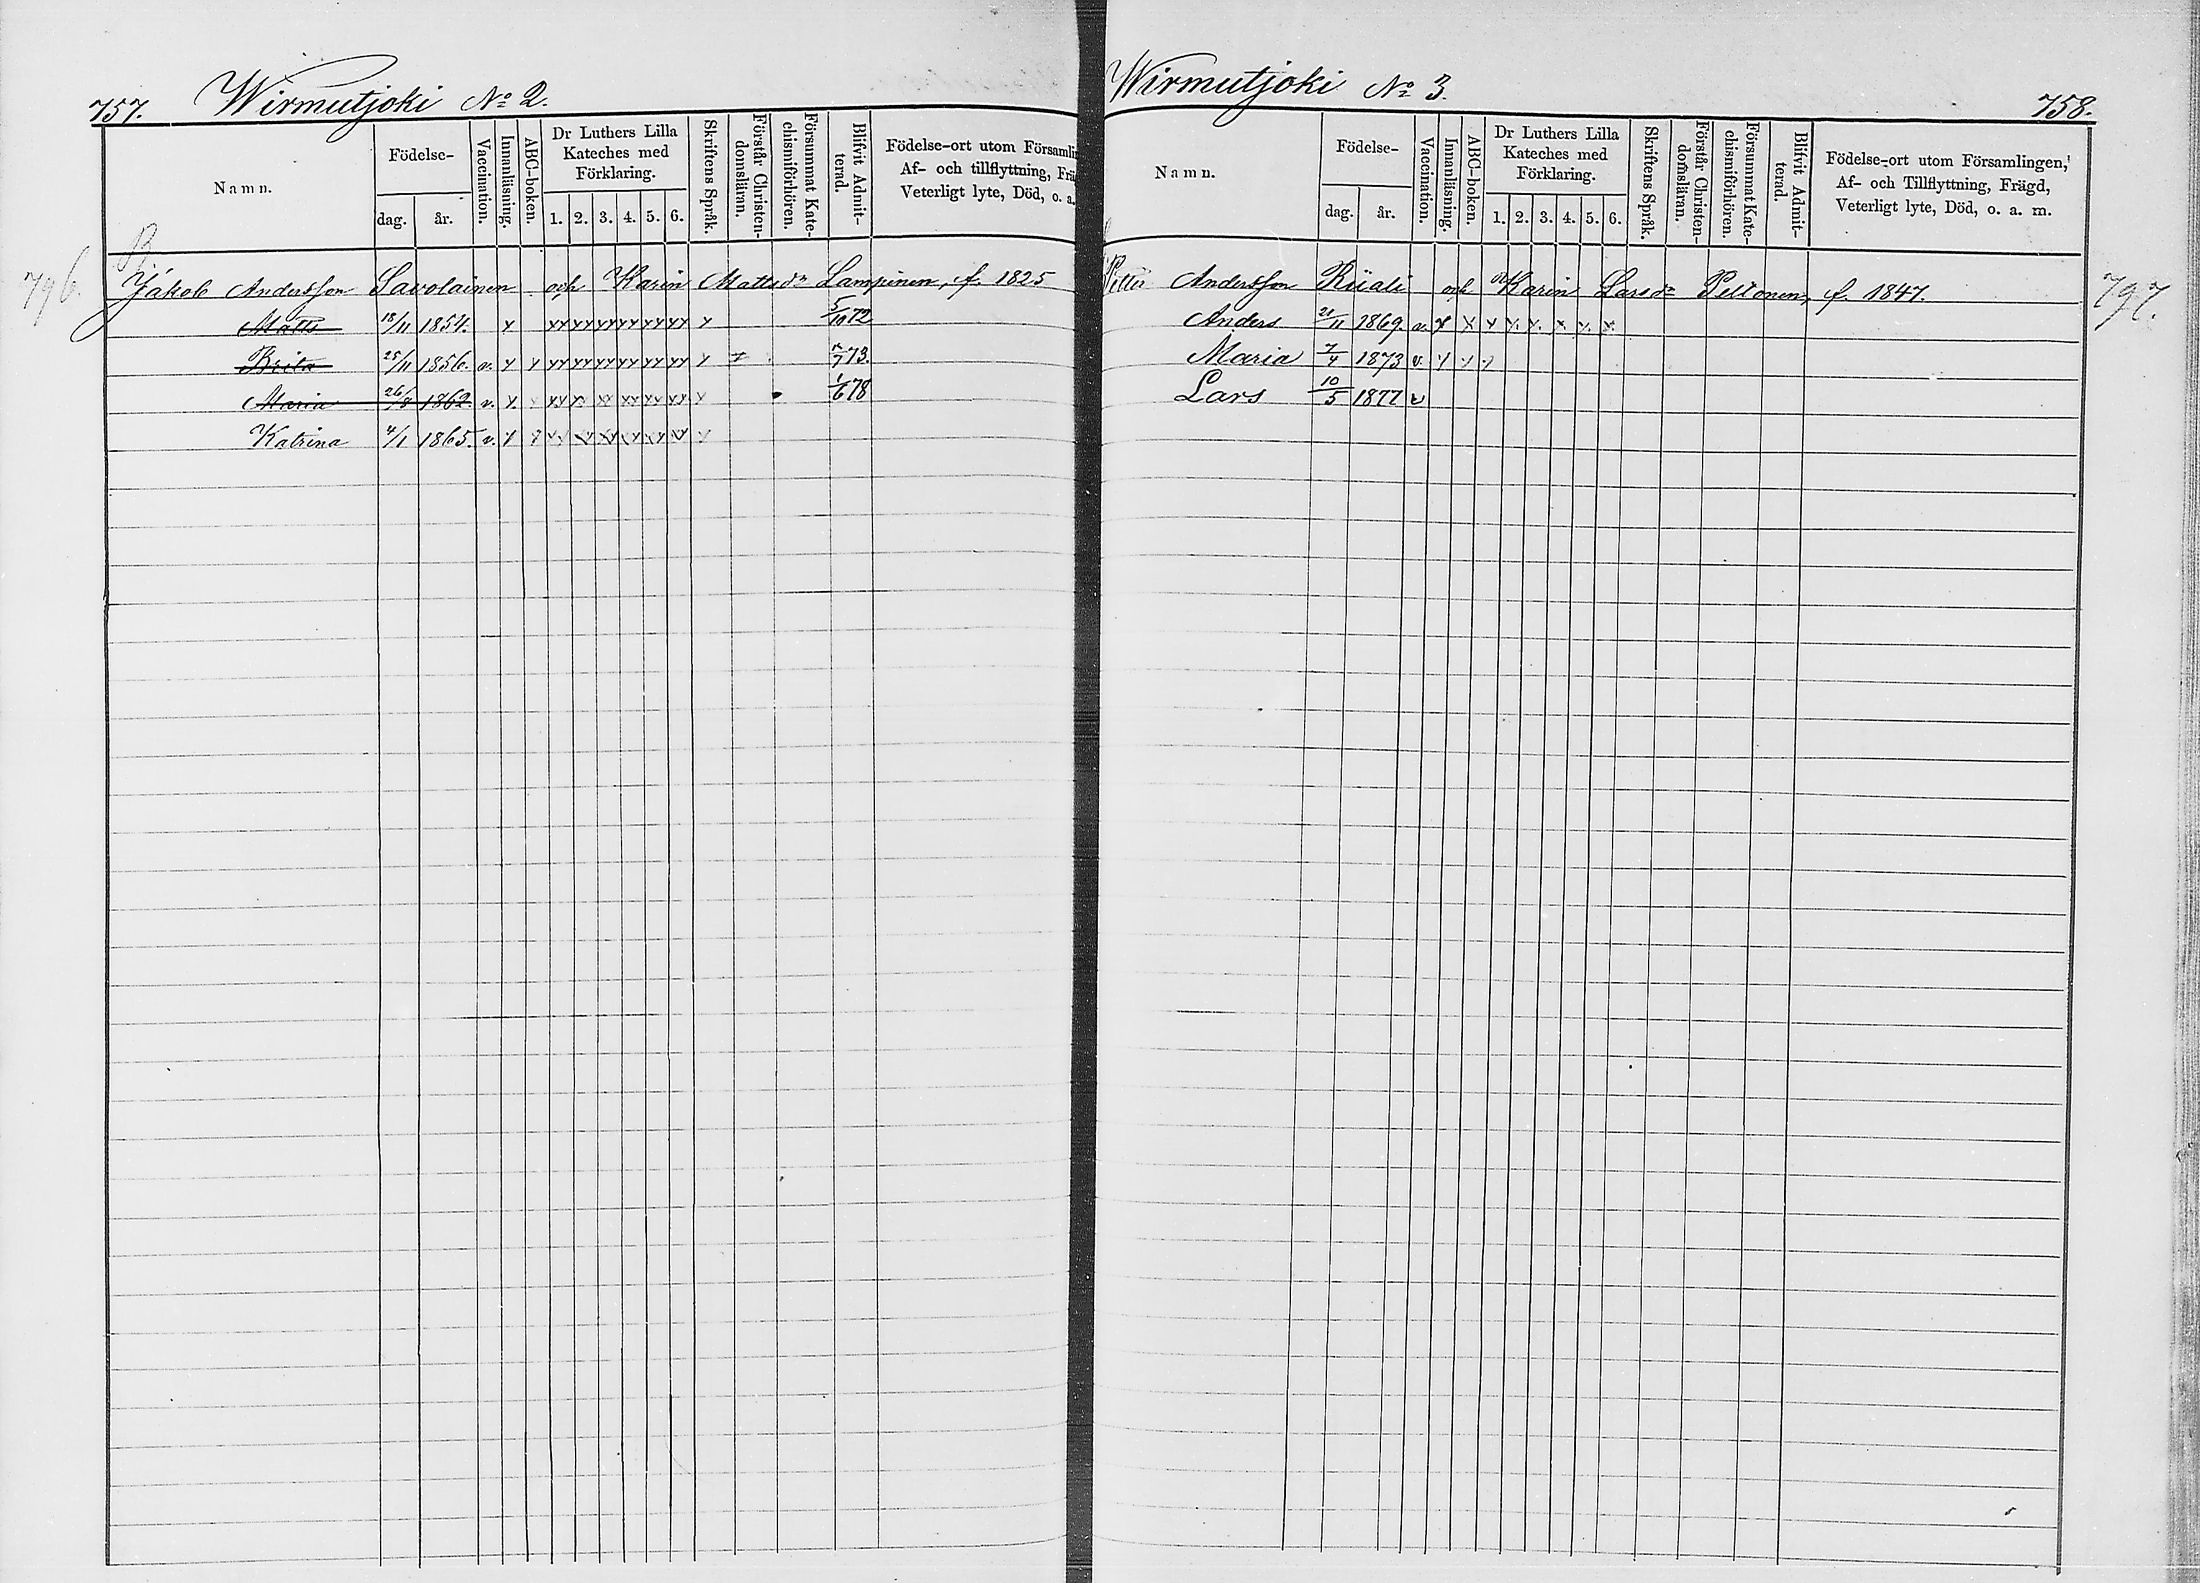 757. Wirmutjoki No 2.
Namn. Födelse- dag. år. Vaccination. Innanläsning. ABC-boken. Dr Luthers Lilla Kateches med Förklaring. 1. 2. 3. 4. 5. 6. Skriftens Språk. Förstår Christen-domsläran. Försummat Kate-chismiförhören. Blifvit Admit-terad. Födelse-ort utom Församlin Af- och tillflyttning, Frä Veterligt lyte, Död, o. a.
B.
796. Jakob Andersson Savolainen och Karin Mattsdr Lampinen, f. 1825
Matts 18/11 1854. x xx xx xx xx xx xx x 5/10 72
Brita 25/11 1856. v. x x xx xx xx xx xx xx x 7/7 73.
Maria 26/8 1862. v. x. xx xx xx xx xx xx x 1/6 78
Katrina 4/1 1865. v. x x xx xx xx xx xx xx x
Wirmutjoki No 3. 758.
Namn. Födelse- dag. år. Vaccination. Innanläsning. ABC-boken. Dr Luthers Lilla Kateches med Förklaring. 1. 2. 3. 4. 5. 6. Skriftens Språk. Förstår Christen-domsläran. Försummat Kate-chismiförhören. Blifvit Admit-terad. Födelse-ort utom Församlingen, Af- och Tillflyttning, Frägd, Veterligt lyte, Död, o. a. m.
Petter Andersson Riiali och Karin Larsdr Peltonen, f. 1847. 797.
Anders 21/11 1869. v. x x x x. x. x. x. x.
Maria 7/4 1873 v. x x x
Lars 10/5 1877 v